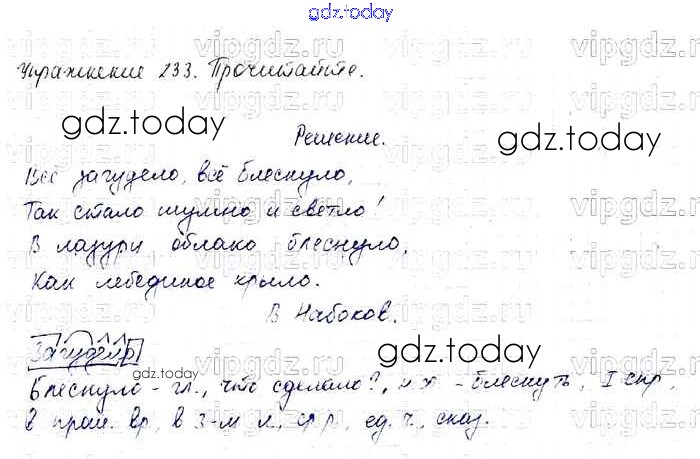 gdz.today
Упражнение 233. Прочитайте.
gdz.today
gdz.today
Решение.
Всё загудело, всё блеснуло,
Так стало шумно и светло!
В лазури облако блеснуло,
Как лебединое крыло.
В Набоков.
Загудело
gdz.today
gdz.today
Блеснуло - гл., что сделало?, н ф - блеснуть, I спр,
в прош. вр, в 3-м л, ср р, ед. ч., сказ.
vipgdz.ru